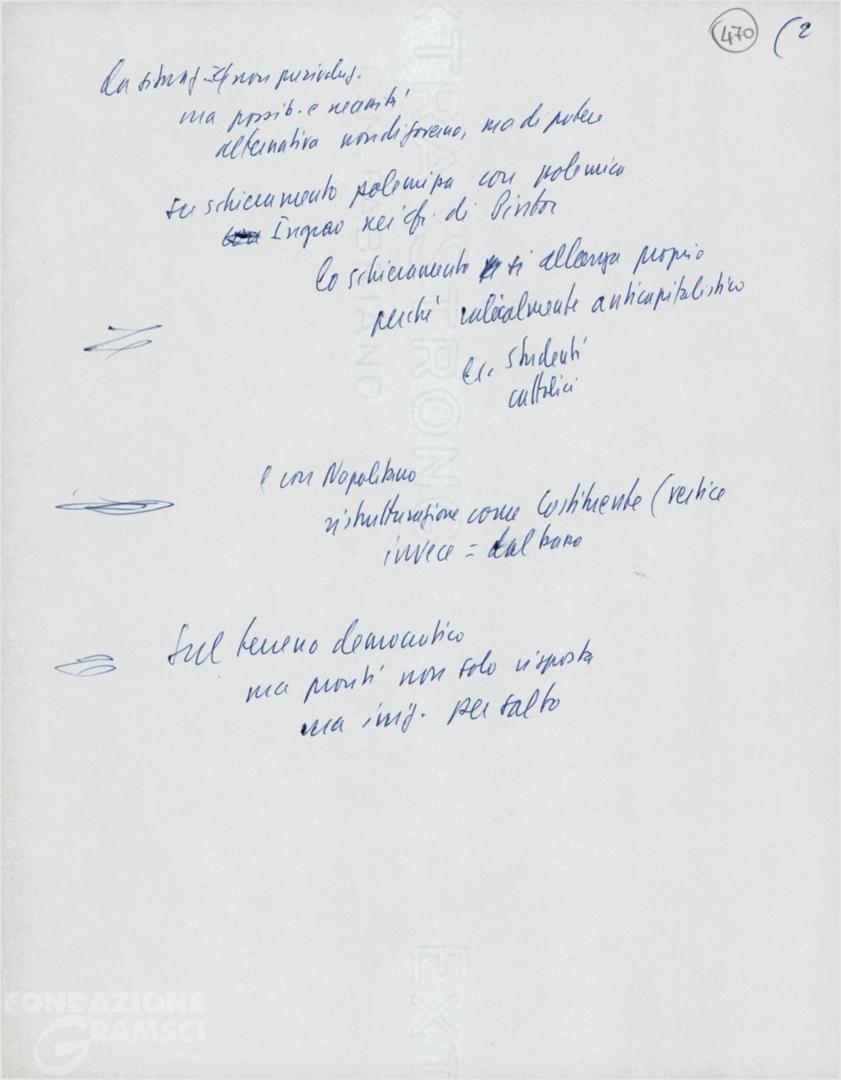 470 (2
La situaz. non
ma possib. e necessità
alternativa non di governo, ma di potere
su schieramento polemica con polemica
Ingrao nei cfr. di Pintor
lo schieramento si allarga proprio
perché radicalmente anticapitalistico
es. studenti
cattolici
e con Napolitano
ristrutturazione come Costituente (vertice
invece = dal basso
Sul terreno democratico
ma pronti non solo risposta
ma per salto
EXTRA STRONG
FABRIANO
EXT
FONDAZIONE
GRAMSCI